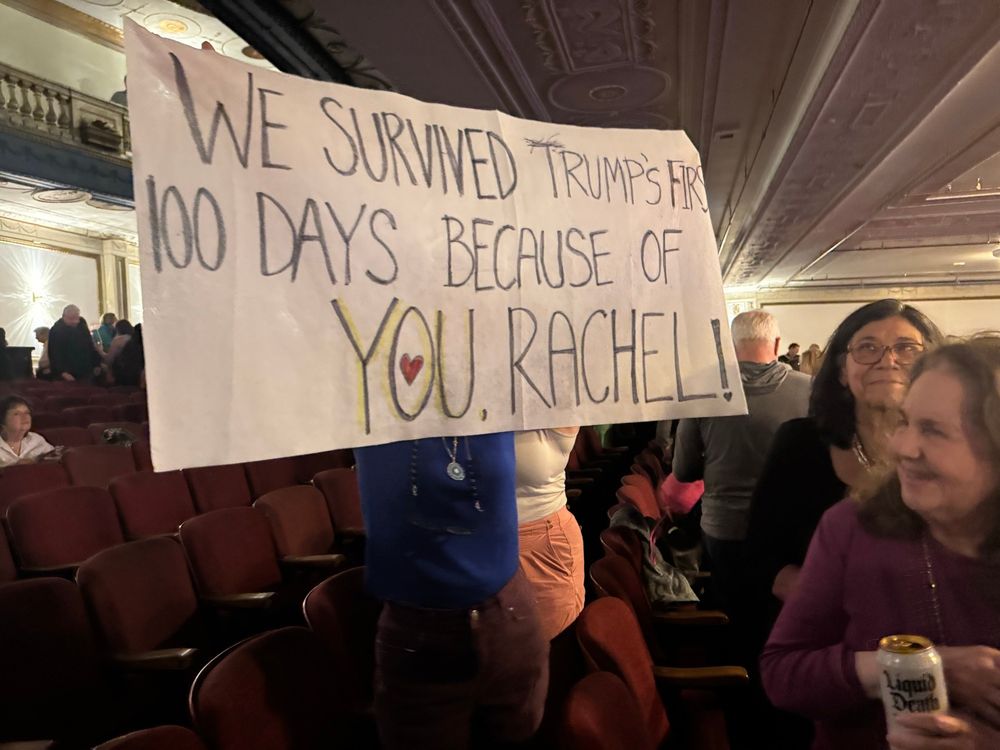 WE SURVIVED TRUMP'S FIRS
100 DAYS BECAUSE OF
YOU, RACHEL!
Liquid
Death